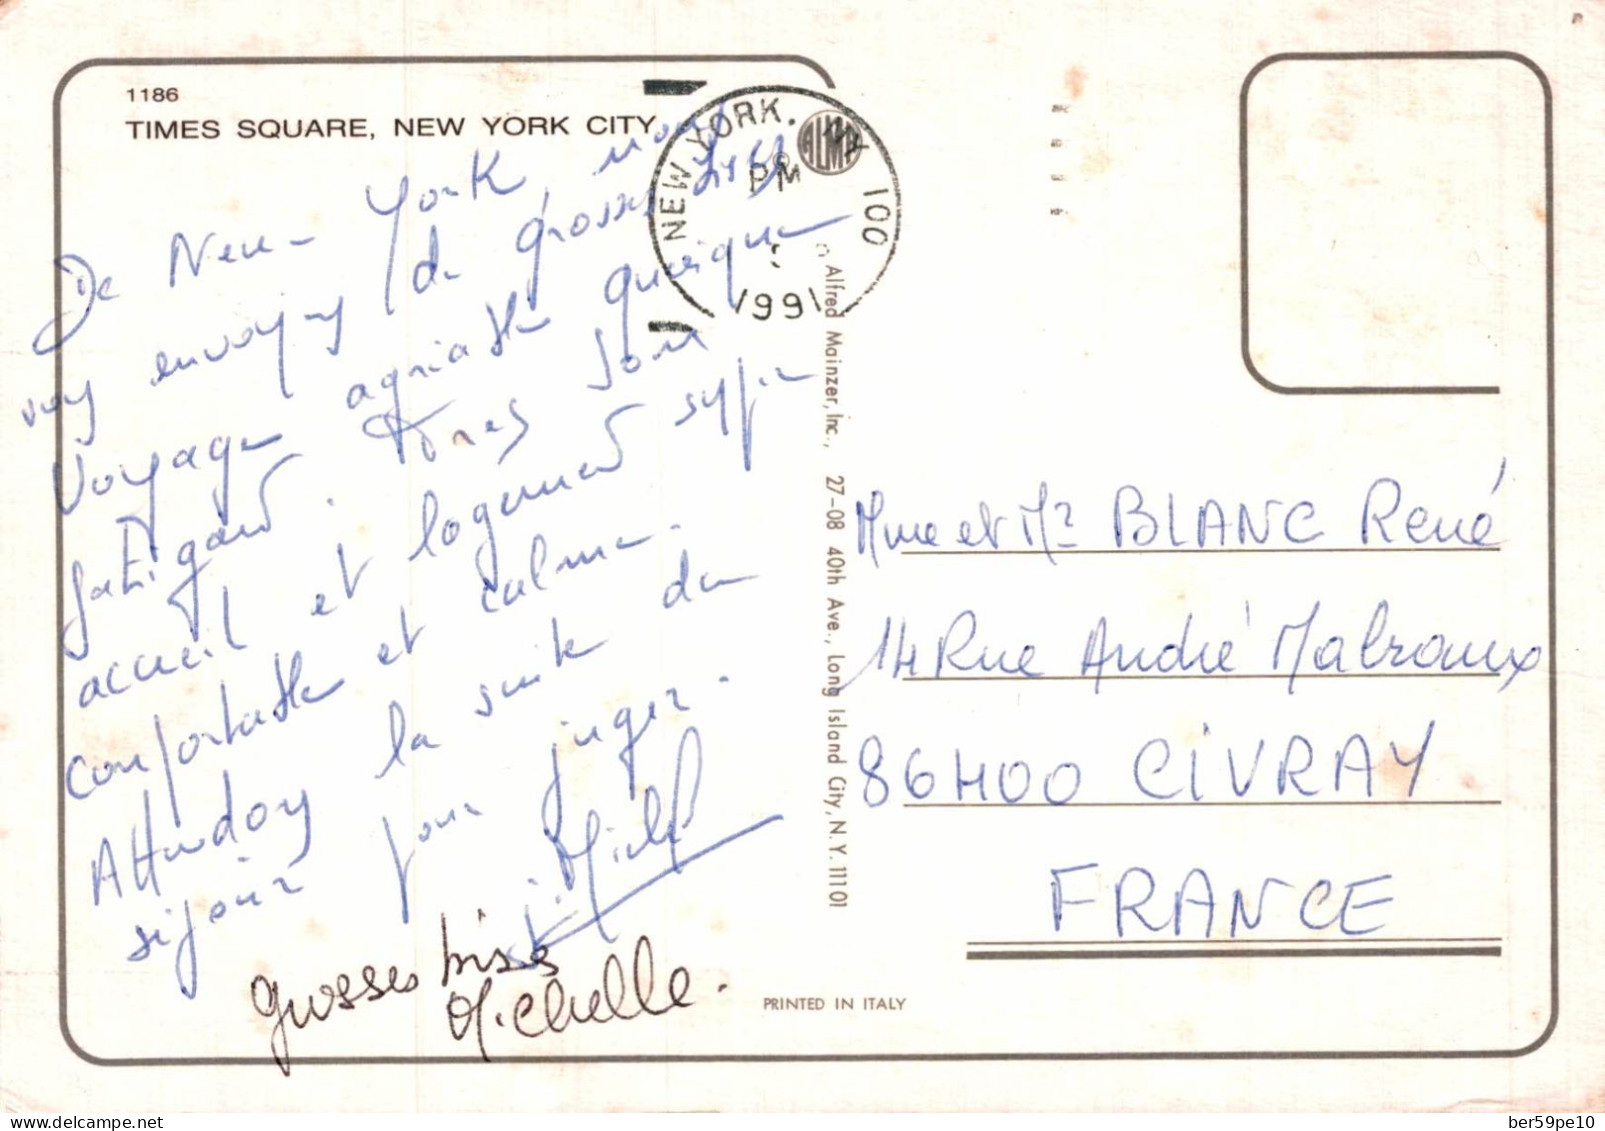 1186
TIMES SQUARE, NEW YORK CITY
De New-York, nous
voys envoyons de grosses bises
Voyage agréable quoique
fatigant. Très bon
accueil et logement super
confortable et calme.
Attendons la suite du
séjour pour juger.
Michel
grosses bises
Michelle.
NEW YORK, NY 100
PM
1991
ALMA
© Alfred Mainzer, Inc., 27-08 40th Ave., Long Island City, N.Y. 11101
Mme et Mr BLANC René
14 Rue André Malraux
86400 CIVRAY
FRANCE
PRINTED IN ITALY
delcampe.net
ber59pe10